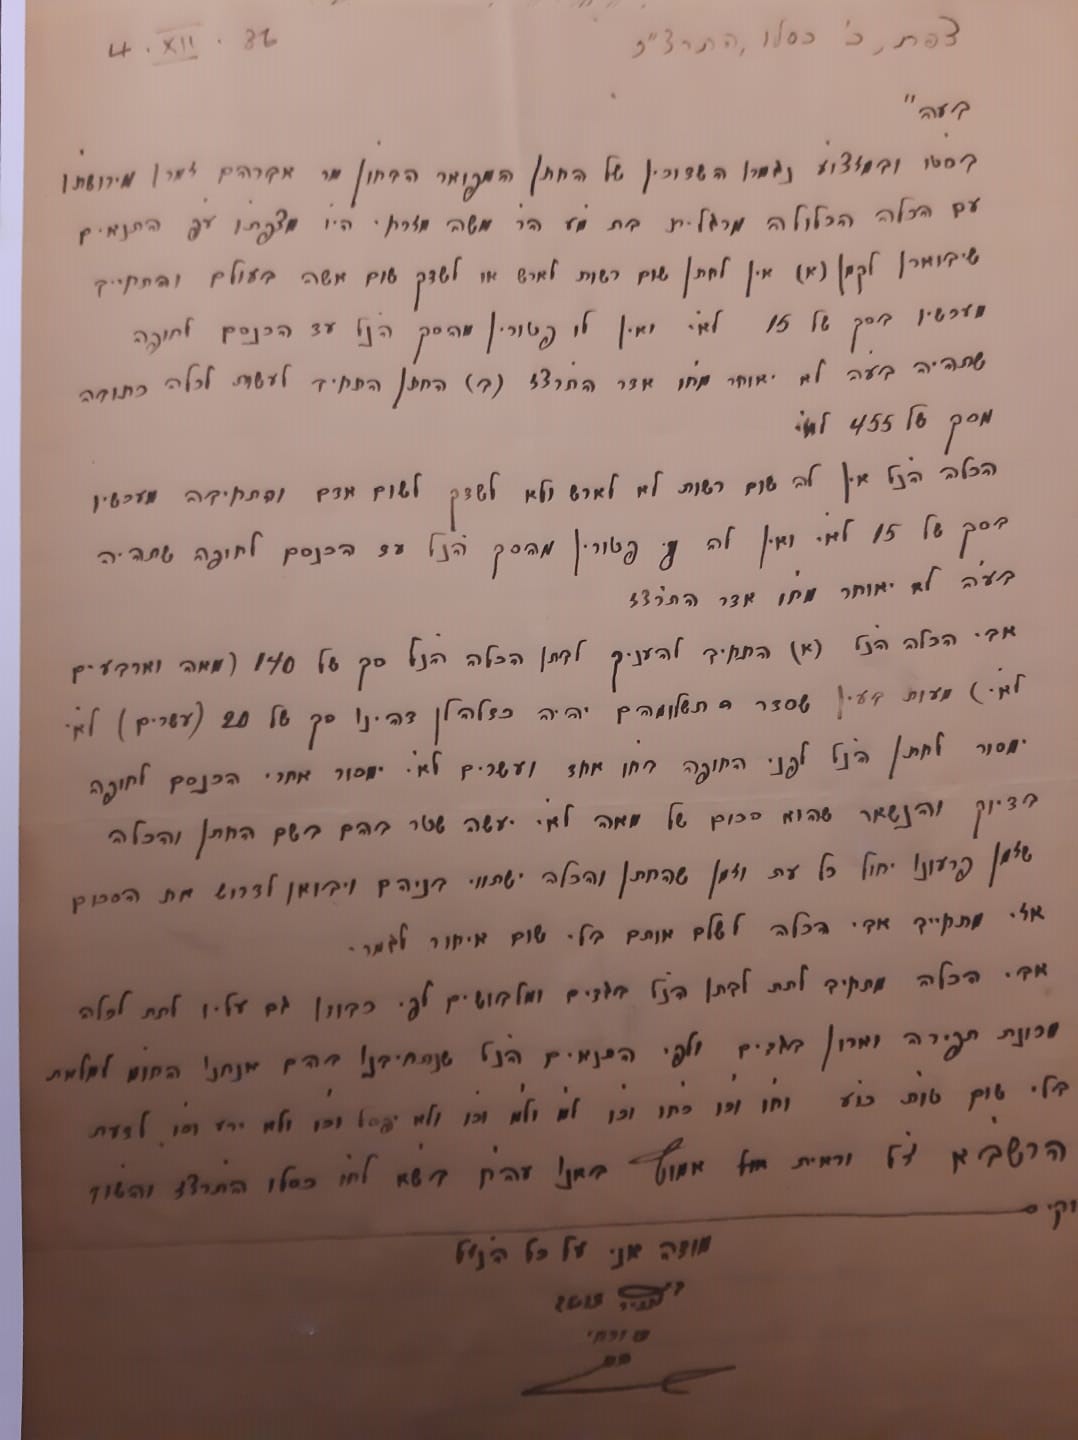 צפת, כ' כסלו, התרצ"ז 4.XII.36
בעה"
בסט"ו ובמזצו"ע נגמרו השדוכין של החתן המפואר הבחו"ן מר אברהם זמרו מירושת"ו
עם הכלה הכלולה מרגלית בת מ"ע הר' משה מזרחי הי"ו מצפת"ו ע"פ התנאים
שיבוארו לקמן (א) אין לחתן שום רשות לארש או לשדך שום אשה בעולם והתחייב
מעכשיו בסך של 15 לא"י ואין לו פטורין מהסך הנ"ל עד הכנסם לחופה
שתהיה בע"ה לא יאוחר מח"ו אדר התרצ"ז (ב) החתן התחיב לעשות לכלה כתובה
מסך של 455 לא"י
הכלה הנ"ל אין לה שום רשות לא לארש ולא לשדך לשום אדם והתחיבה מעכשיו
בסך של 15 לא"י ואין לה פטורין מהסך הנ"ל עד הכנסם לחופה שתהיה
בע"ה לא יאוחר מח"ו אדר התרצ"ז
אבי הכלה הנ"ל (א) התחיב להעניק לבתו הכלה הנ"ל סך של 140 (מאה וארבעים
לא"י) מעות בעין שסדר תשלומהים יהיה כדלהלן דהינו סך של 20 (עשרים) לא"י
ימסור לחתן הנ"ל לפני החופה בח"ו אחד ועשרים לא"י ימסור אחרי הכנסם לחופה
בדיוק והנשאר שהוא סכום של מאה לא"י יעשה שטר בהם בשם החתן והכלה
שזמן פרעונו יחול כל עת וזמן שהחתן והכלה ישתוו בניהם ויבואו לדרוש את הסכום
אזי מתחייב אבי הכלה לשלם אותם בלי שום איחור לגמרי.
אבי הכלה מתחיב לתת לבתו הנ"ל בגדים ומלבושים לפי כבודו גם עליו לתת לכלה
מכונת תפירה וארון בגדים ולפי התנאים הנ"ל שנתחיבנו בהם אנחנו
בלי שום טו"ת כו"ע וח"ו וכ"ו כח"ו וכ"ו לא ולא וכ"ו ולא יפסל וכ"ו ולא ירע וכ"ו לדעת
הרשב"א ז"ל בש"א לח"ו כסלו התרצ"ז והשו"ד
וקים
מודה אני על כל הנ"ל